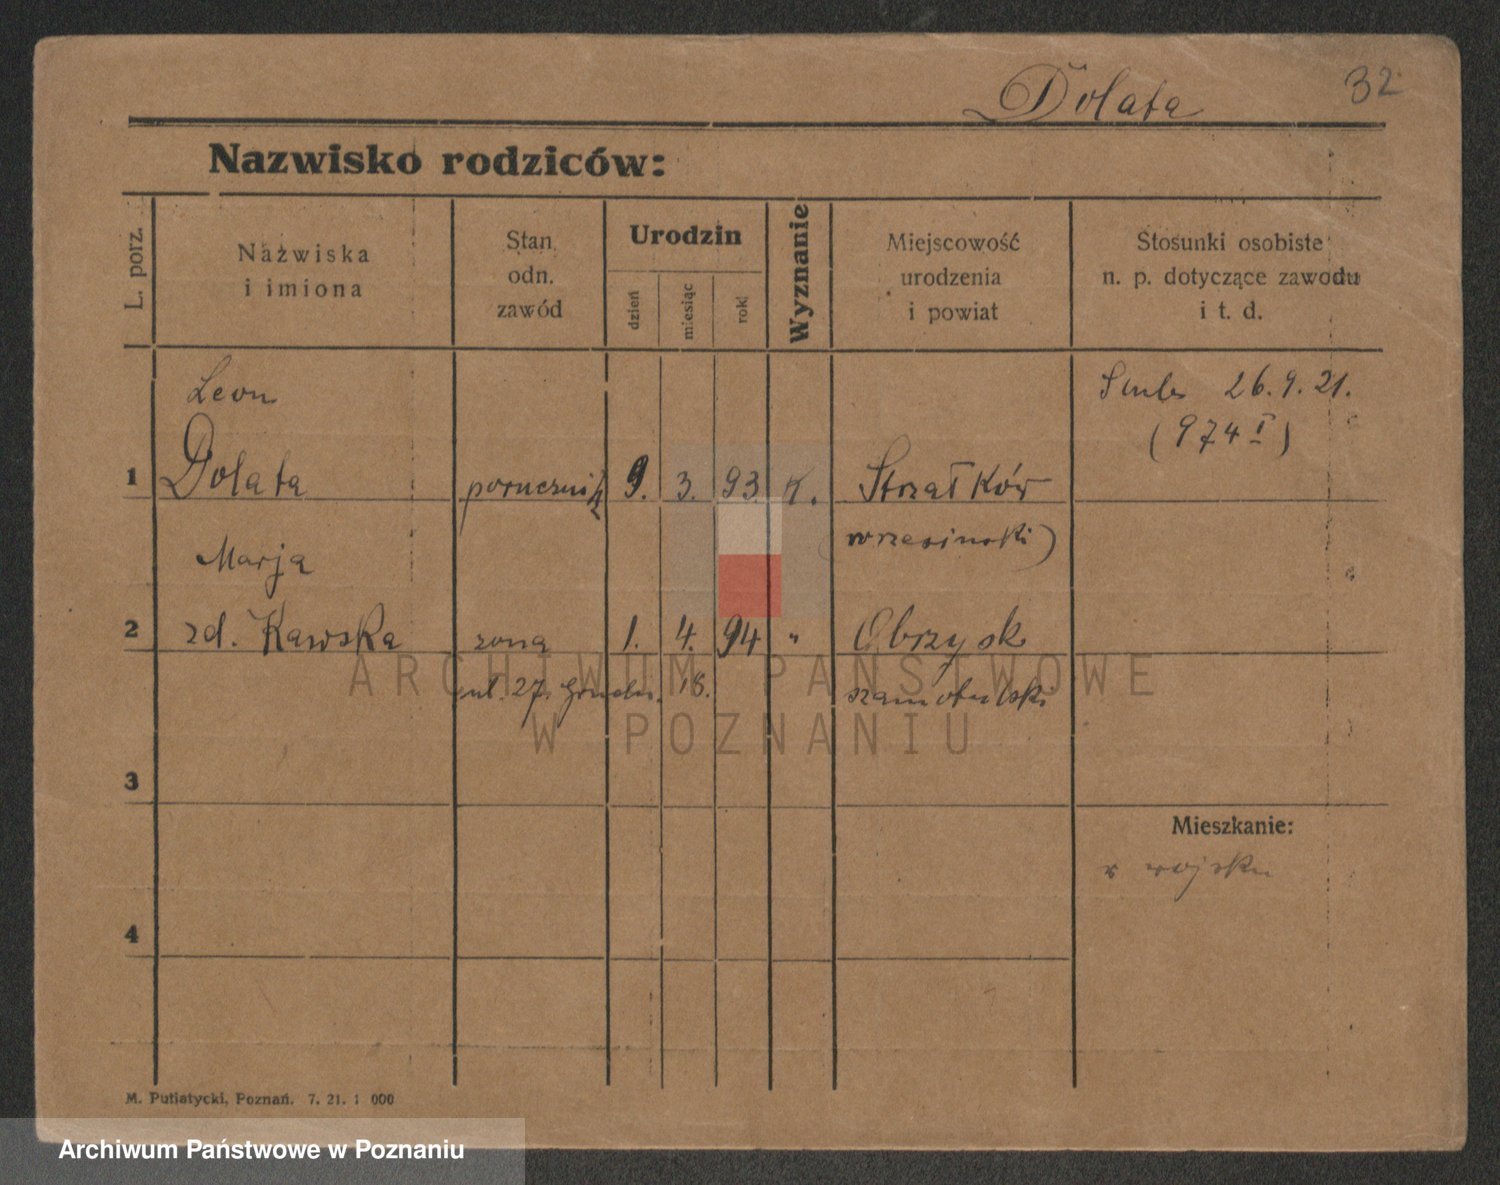 Dolata 32
Nazwisko rodziców:
L. porz.
Nazwiska
i imiona
Stan
odn.
zawód
Urodzin
dzień
miesiąc
rok
Wyznanie
Miejscowość
urodzenia
i powiat
Stosunki osobiste
n. p. dotyczące zawodu
i t. d.
Leon 26.9.21.
(974 I)
1 Dolata porucznik 9. 3. 93. K. Strzałków
(wrzesinski)
Marja
2 zd. Kawska żona 1. 4. 94 " Obrzysk
ul. 27. Grudn. 18. szamotulski
ARCHIWUM PAŃSTWOWE
W POZNANIU
3
Mieszkanie:
w wojsku
4
M. Putiatycki, Poznań. 7. 21. 1 000
Archiwum Państwowe w Poznaniu